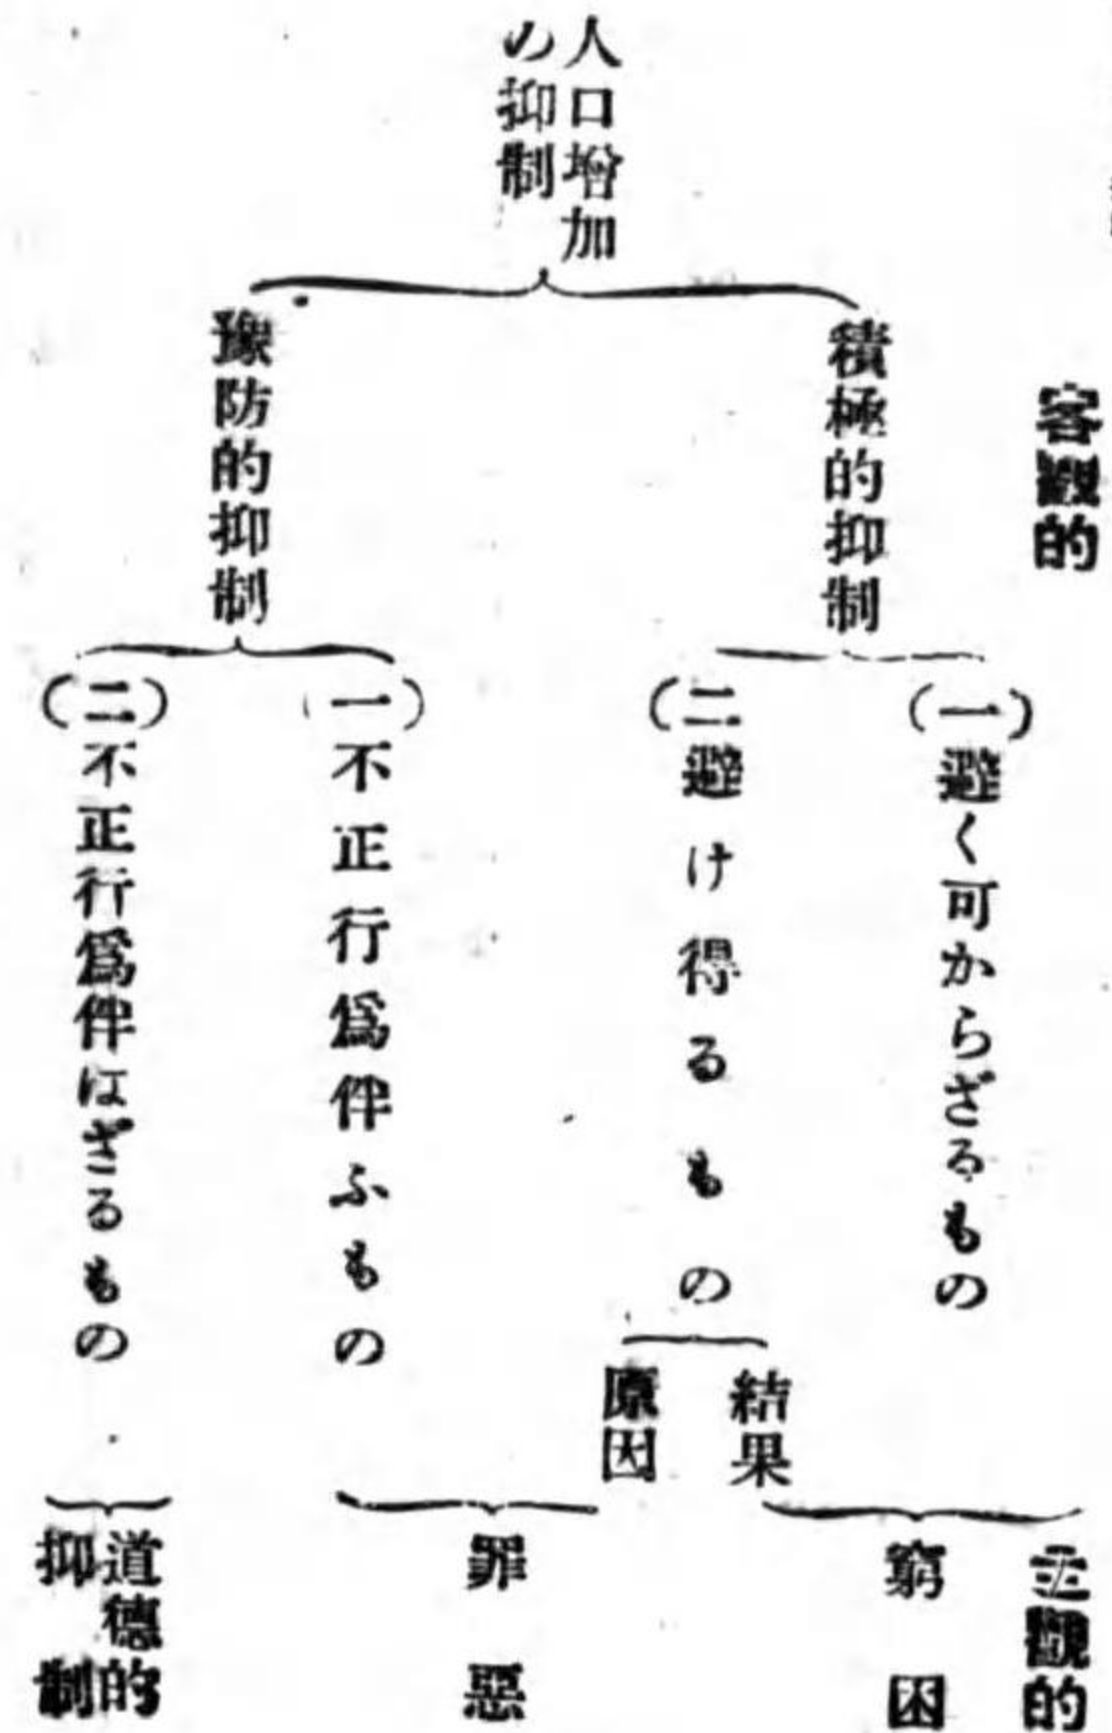 客觀的
人口增加
の抑制
積極的抑制
(一)避く可からざるもの
(二)避け得るもの
結果
原因
豫防的抑制
(一)不正行爲伴ふもの
(二)不正行爲伴はざるもの
主觀的
窮困
罪惡
道德的
抑制